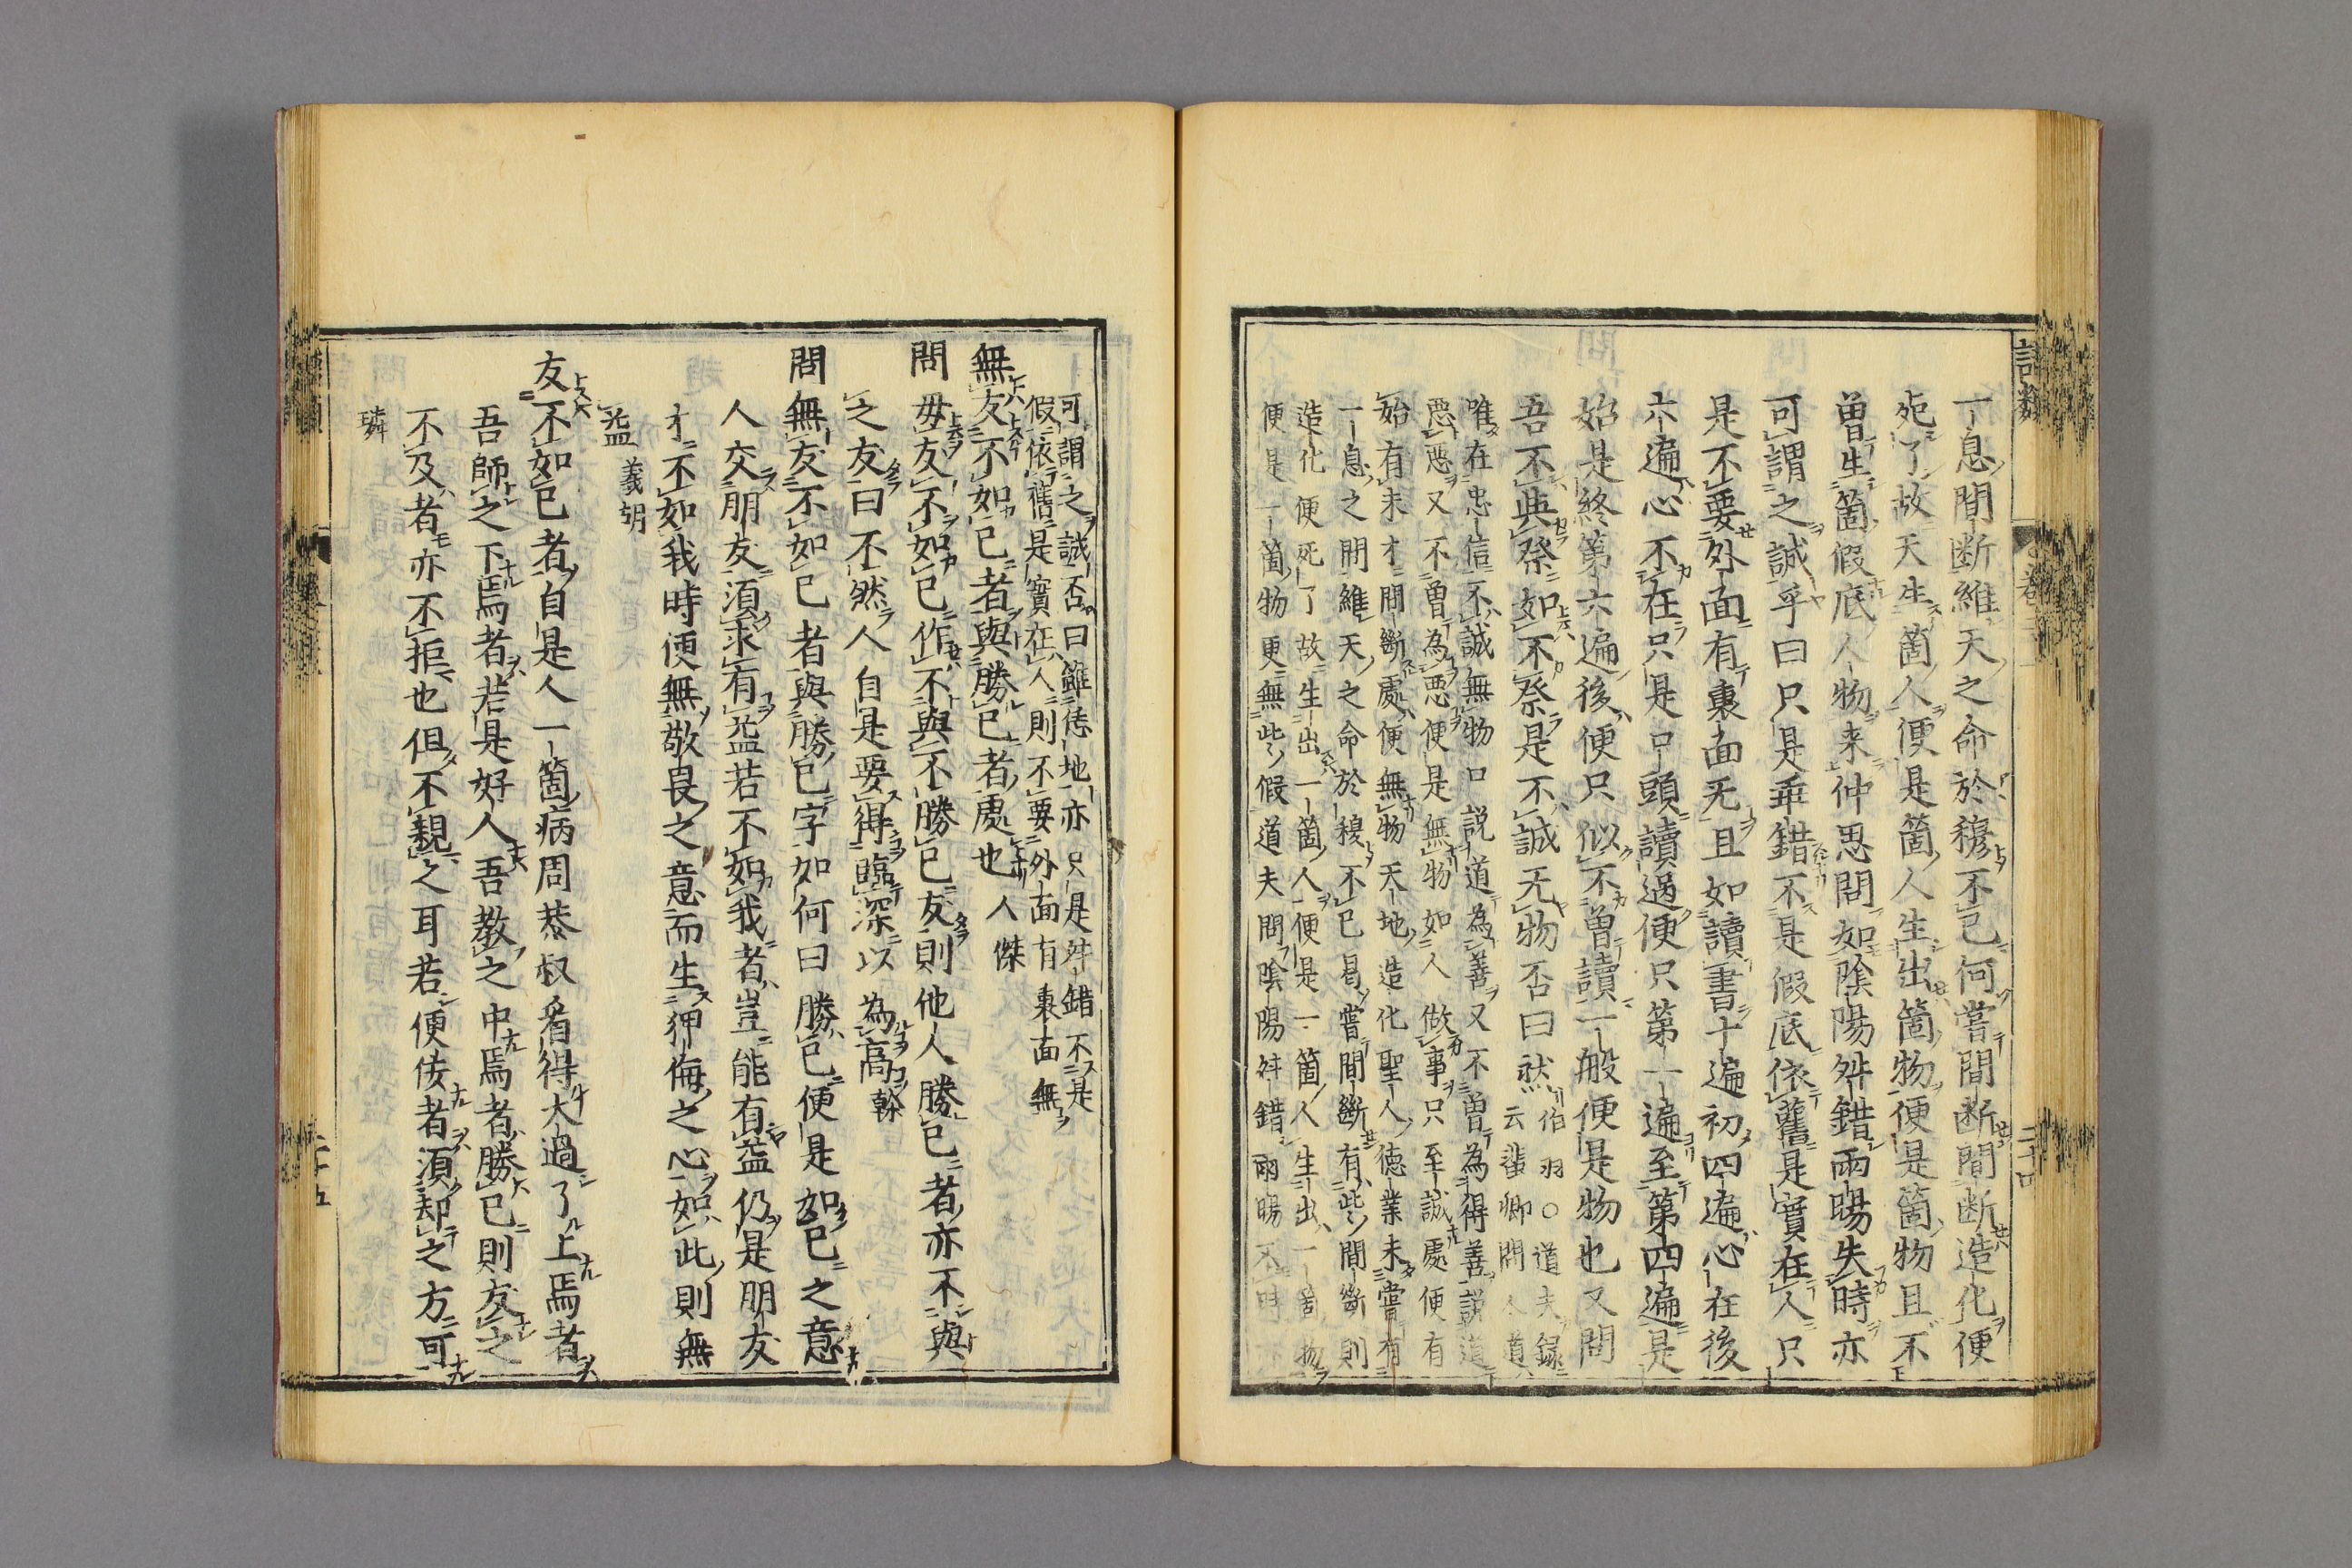 一息間断維天之命於穆不已何嘗間断間断造化便
死了故天生箇人便是箇人生出箇物便是箇物且不
曾生箇假底人物来仲思問如陰陽舛錯雨暘失時亦
可謂之誠乎曰只是乖錯不是假底依舊是實在人只
是不要外面有裏面无且如讀書十遍初四遍心在後
六遍心不在只是口頭讀過便只第一遍至第四遍是
始是終第六遍後便只似不曾讀一般便是物也又問
吾不與祭如不祭是不誠无物否曰然伯羽○道夫録
云蜚卿問 道
唯在忠信不誠無物口説道為善又不曾為得善説道
惡惡又不曾為惡便是無物如人做事只至誠處便有
始有末才間斷處便無物天地造化聖人德業未嘗有
一息之間維天之命於穆不已曷嘗間斷有些間斷則
造化便死了故生出一箇人便是一箇人生出一箇物
便是一箇物更無些假道夫問陰陽舛錯雨暘不時
語類
卷二十一
二十四
可謂之誠否曰雖恁地亦只是舛錯不是
假依舊是實在人則不要外面有裏面無
無友不如己者與勝己者處也人傑
問毋友不如己作不與不勝己友則他人勝己者亦不與
之友曰不然人自是要得臨深以為高榦
問無友不如己者與勝己字如何曰勝己便是如己之意
人交朋友須求有益若不如我者豈能有益仍是朋友
才不如我時便無敬畏之意而生狎侮之心如此則無
益義剛
友不如己者自是人一箇病周恭叔看得大過了上焉者
吾師之下焉者若是好人吾教之中焉者勝己則友之
不及者亦不拒也但不親之耳若便佞者須却之方可
璘
二十五